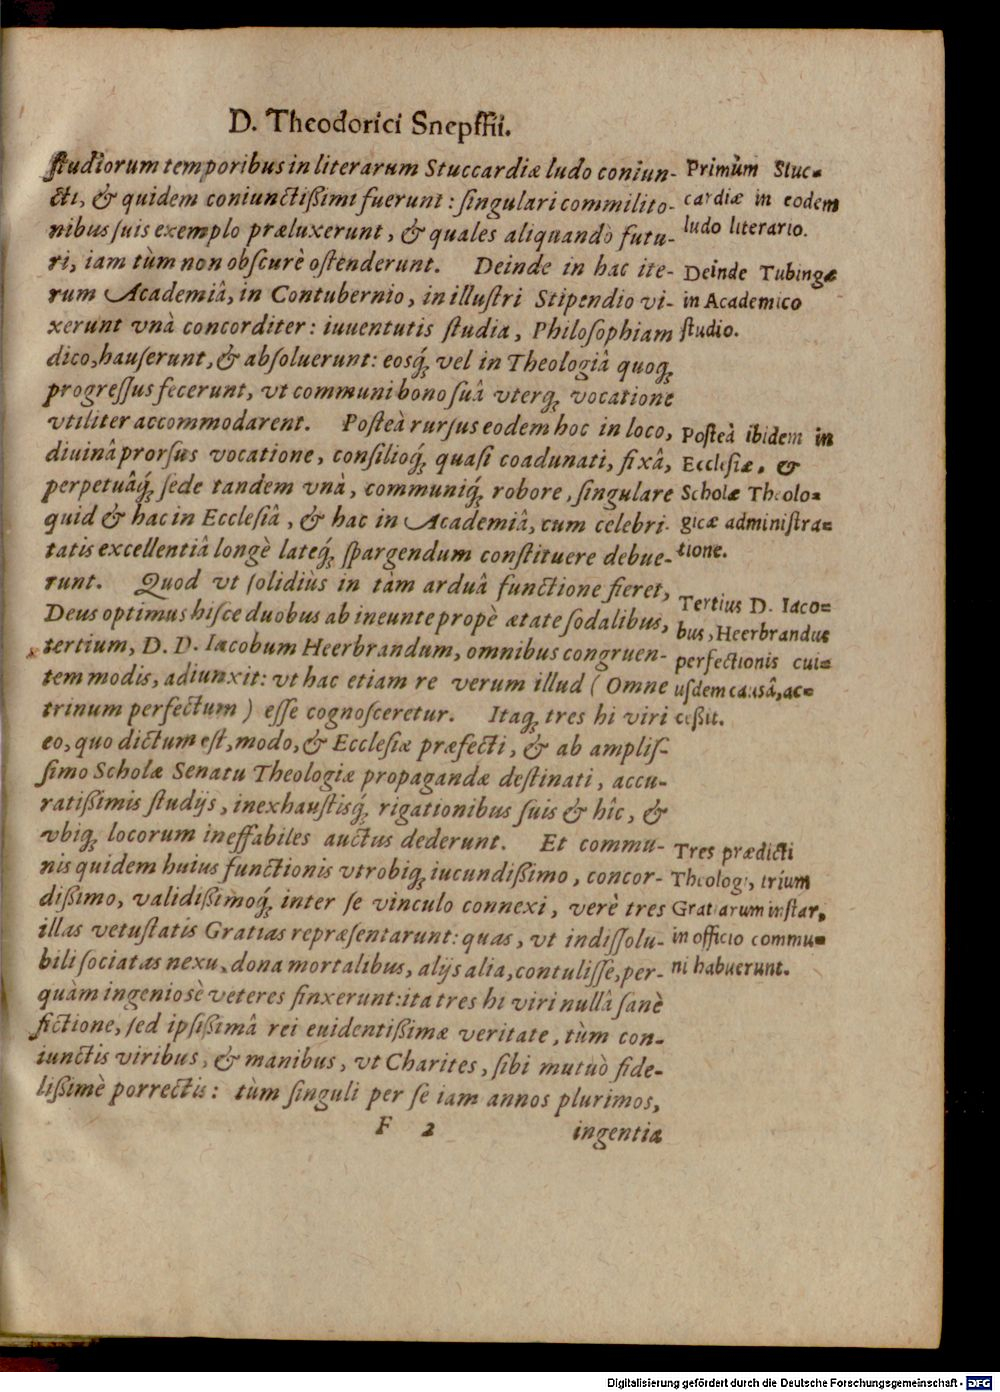 D. Theodorici Snepffii.
ſtudiorum temporibus in literarum Stuccardiæ ludo coniun-
cti, & quidem coniunctißimi fuerunt : ſingulari commilito-
nibus ſuis exemplo præluxerunt, & quales aliquandò futu-
ri, iam tùm non obſcurè oſtenderunt. Deinde in hac ite-
rum Academiâ, in Contubernio, in illuſtri Stipendio vi-
xerunt vnà concorditer : iuuentutis ſtudia, Philoſophiam
dico, hauſerunt, & abſoluerunt: eosq́; vel in Theologiâ quoq;
progreſſus fecerunt, vt communi bono ſuâ vterq; vocatione
vtiliter accommodarent. Poſteà rurſus eodem hoc in loco,
diuinâ prorſus vocatione, conſilioq́; quaſi coadunati, fixâ,
perpetuâq́; ſede tandem vnà, communiq́; robore, ſingulare
quid & hac in Eccleſiâ, & hac in Academiâ, cum celebri-
tatis excellentiâ longè lateq́; ſpargendum conſtituere debue-
runt. Quod vt ſolidiùs in tàm arduâ functione fieret,
Deus optimus hiſce duobus ab ineunte propè ætate ſodalibus,
tertium, D. D. Iacobum Heerbrandum, omnibus congruen-
tem modis, adiunxit: vt hac etiam re verum illud ( Omne
trinum perfectum ) eſſe cognoſceretur. Itaq; tres hi viri
eo, quo dictum eſt, modo, & Eccleſiæ præfecti, & ab ampliſ-
ſimo Scholæ Senatu Theologiæ propagandæ deſtinati, accu-
ratißimis ſtudijs, inexhauſtisq́; rigationibus ſuis & hîc, &
vbiq; locorum ineffabiles auctus dederunt. Et commu-
nis quidem huius functionis vtrobiq; iucundißimo, concor-
dißimo, validißimoq́; inter ſe vinculo connexi, verè tres
illas vetuſtatis Gratias repræſentarunt: quas, vt indiſſolu-
bili ſociatas nexu, dona mortalibus, alijs alia, contuliſſe, per-
quàm ingeniosè veteres finxerunt: ita tres hi viri nullâ ſanè
fictione, ſed ipſißimâ rei euidentißimæ veritate, tùm con-
iunctis viribus, & manibus, vt Charites, ſibi mutuò fide-
lißimè porrectis: tùm ſinguli per ſe iam annos plurimos,
F 2 ingentia
Primùm Stuc-
cardiæ in eodem
ludo literario.
Deinde Tubingæ
in Academico
ſtudio.
Poſteà ibidem in
Eccleſiæ, &
Scholæ Theolo-
gicæ adminiſtra-
tione.
Tertius D. Iaco-
bus, Heerbrandus
perfectionis cui-
uſdem causâ, ac-
ceßit.
Tres prædicti
Theologi, trium
Gratiarum inſtar,
in officio commu-
ni habuerunt.
Digitalisierung gefördert durch die Deutsche Forschungsgemeinschaft - DFG